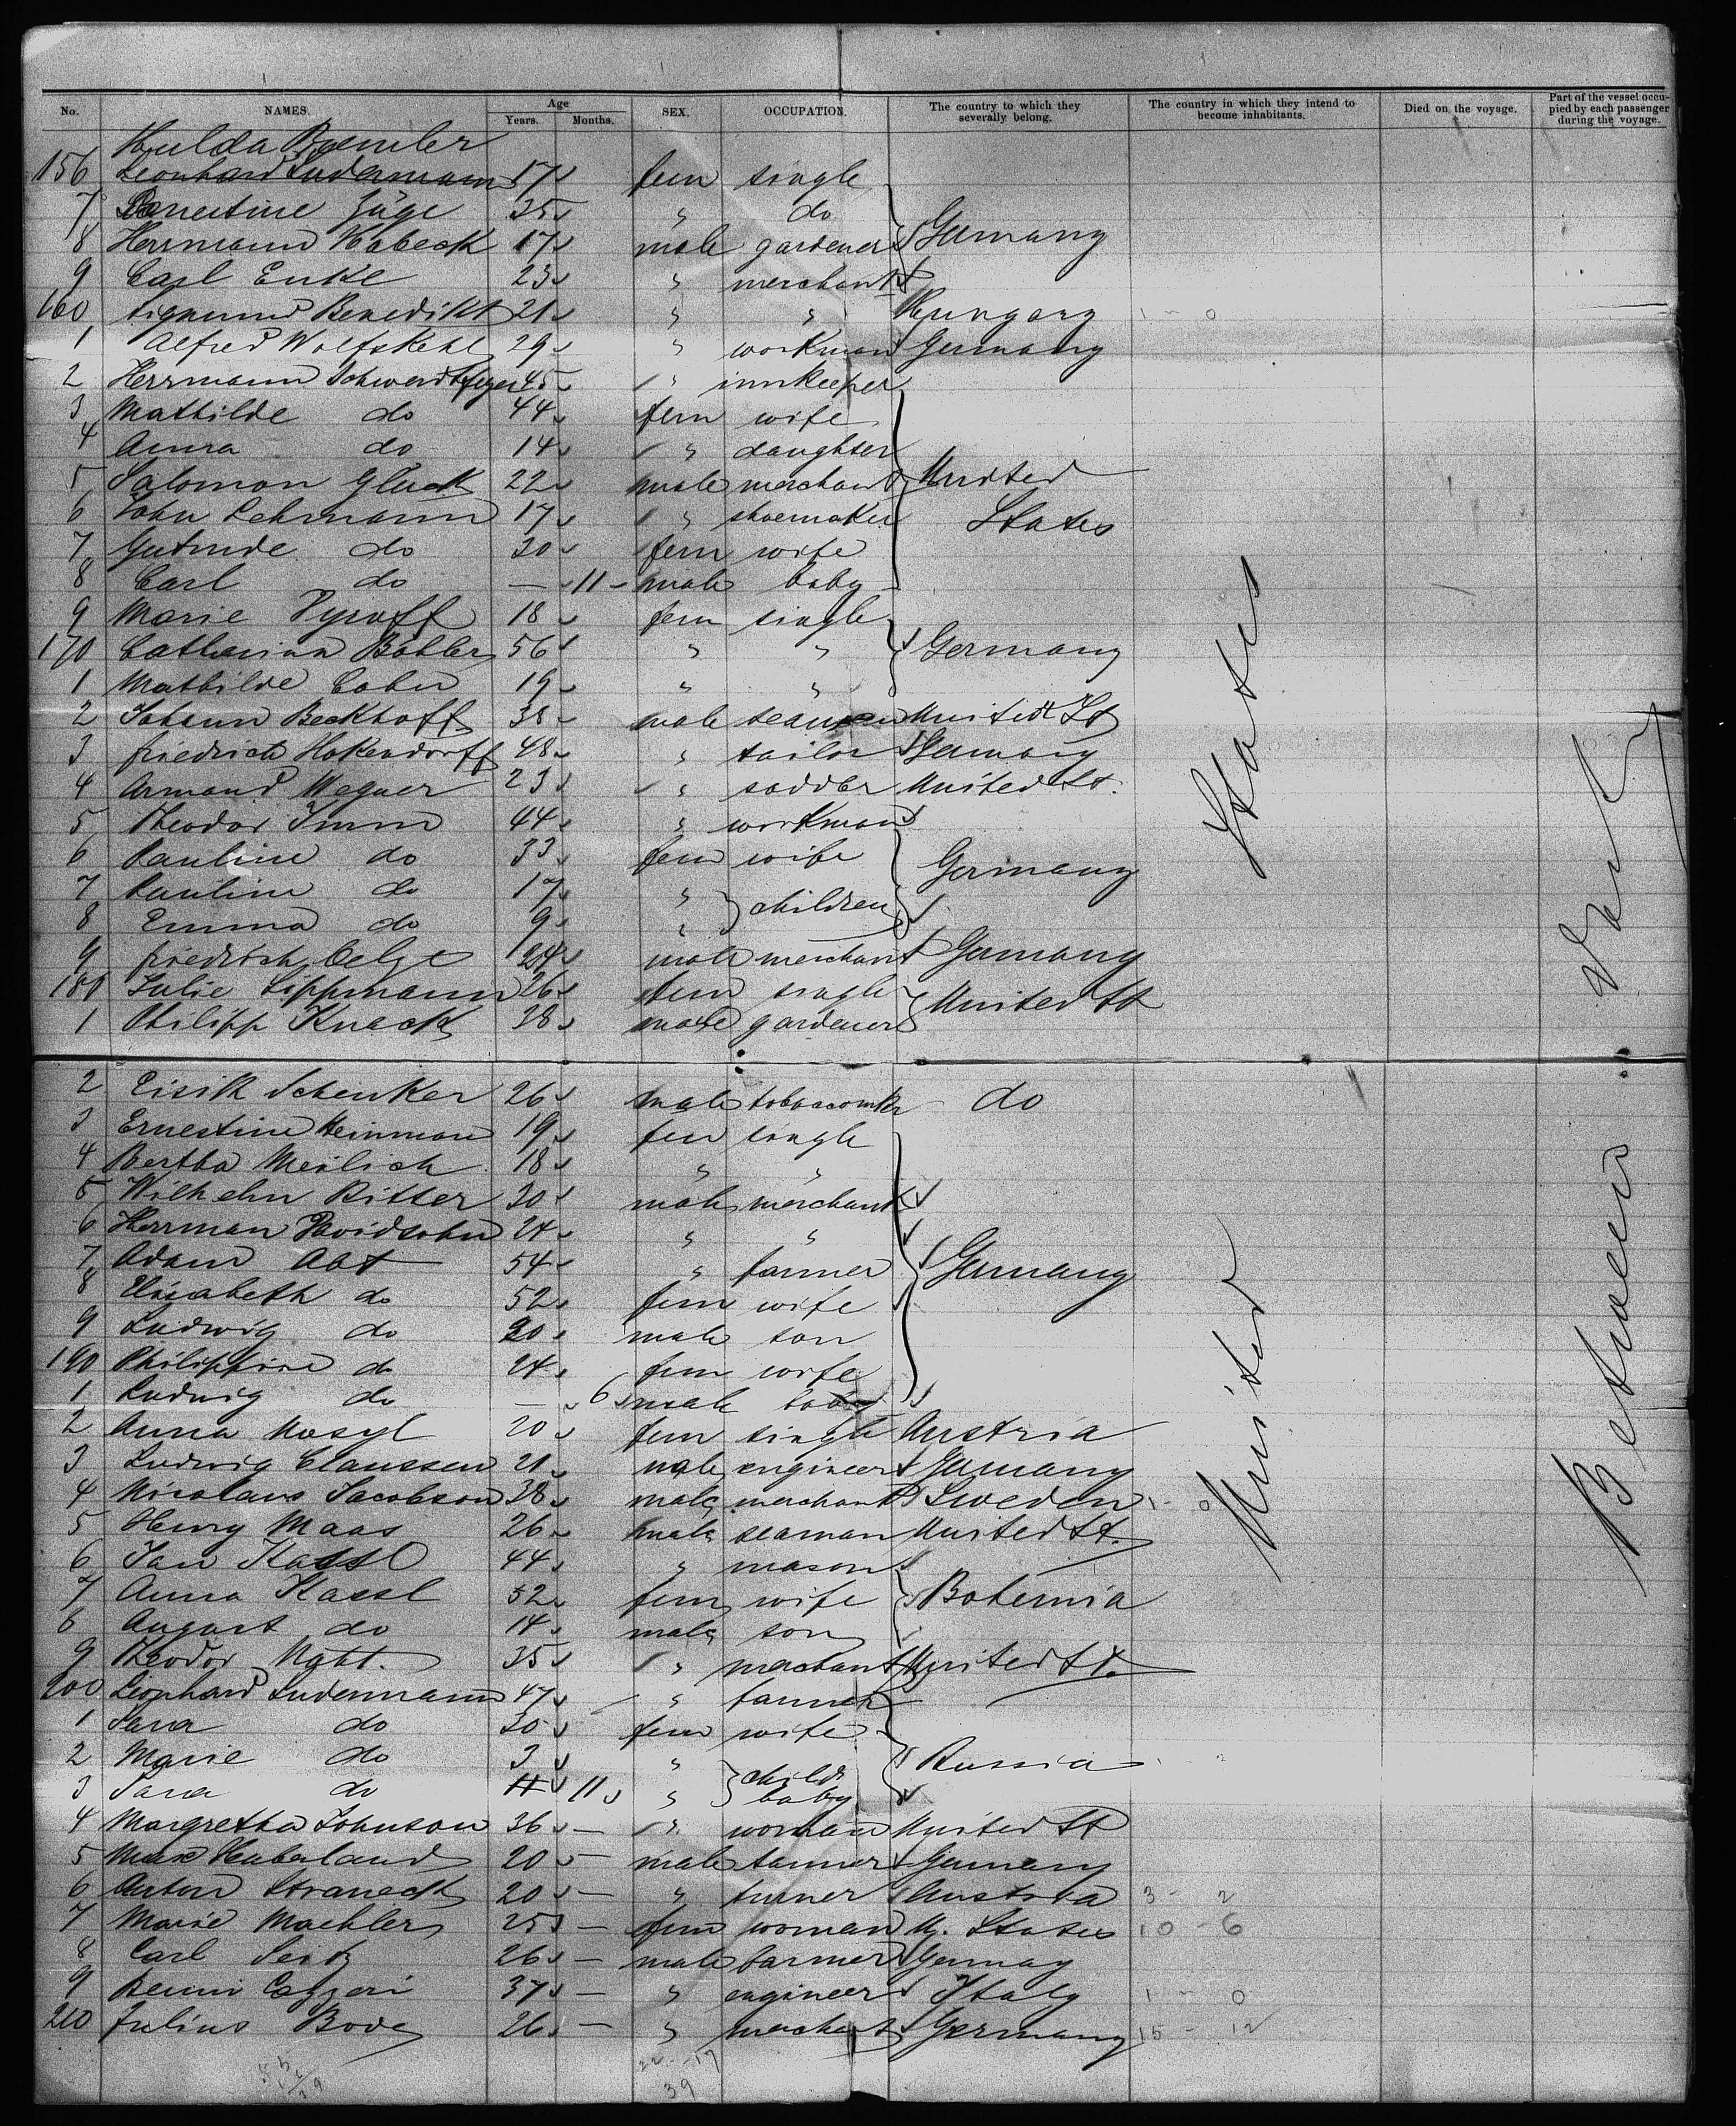 No. NAMES. Age Years. Months. SEX. OCCUPATION. The country to which they severally belong. The country in which they intend to become inhabitants. Died on the voyage. Part of the vessel occupied by each passenger during the voyage.
Hulda
156 Leonhard Ludermann 17 fem single
7 35 " do
8 Herrmann Kabeck 17 male gardener Germany
9 Carl Enke 23 " merchant
160 Sigmund Benedikt 21 " " Hungary
1 Alfred Wolfskehl 29 " workman Germany
2 Herrmann Schwerdtfeger 45 " innkeeper
3 Mathilde do 44 fem wife
4 Anna do 14 " daughter
5 Salomon Gluck 22 male merchant United
6 John Lehmann 17 " shoemaker States
7 do 30 fem wife
8 Carl do — 11 male baby
9 Marie Pyroff 18 fem single
170 Catharina Bähler 56 " " Germany
1 Mathilde Cohn 19 " "
2 Johann Beckhoff 38 male seaman United St
3 Friedrich Hokendorff 48 " tailor Germany
4 Armand Wegner 23 " saddler United St.
5 Theodor Imm 44 " workman
6 Pauline do 33 fem wife Germany
7 Pauline do 17 " children
8 Emma do 9 "
9 Friedrich Oelze 24 male merchant Germany
180 Julie Lippmann 26 fem single United St
1 Philipp Knack 38 male gardener
2 Eisik Schenker 26 male do
3 Ernestine Heinman 19 fem single
4 Bertha Meilich 18 " "
5 Wilhelm Ritter 30 male merchant
6 Herrman Davidsohn 24 " "
7 Adam Abt 54 " farmer Germany
8 Elisabeth do 52 fem wife
9 Ludwig do 30 male son
190 Philippine do 24 fem wife
1 Ludwig do — 6 male baby
2 Anna Mosyl 20 fem single Austria
3 Ludwig Claussen 21 male engineer Germany
4 Nicolaus Jacobson 38 male merchant Sweden
5 Henry Maas 26 male seaman United St.
6 Jan Kassl 44 " mason
7 Anna Kassl 52 fem wife Bohemia
8 August do 14 male son
9 Theodor 35 " merchant United St.
200 Leonhard Ludermann 47 " farmer
1 Sara do 30 fem wife
2 Marie do 3 " child Russia
3 Sara do 11 " baby
4 Margretha Johnson 36 — " woman United St
5 Max Haberland 20 — male farmer Germany
6 Anton Straneck 20 — " turner Austria 3 - 2
7 Marie Maehler 25 — fem woman U. States 10 - 6
8 Carl 26 — male farmer Germay
9 Benni 37 — " engineer Italy 1 - 0
210 Julius Bode 26 — " merchant Germany 15 - 12
United States
Between Deck
22 - 17
39